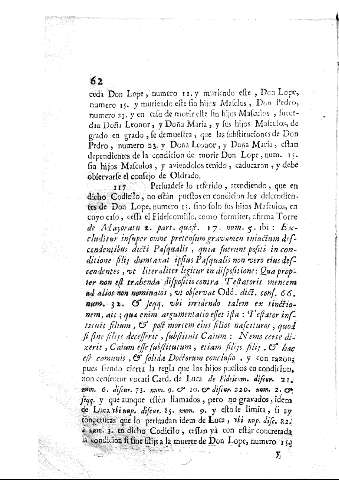 62
ceda Don Lope, numero 12. y muriendo este, Don Lope,
numero 15. y muriendo este sin hijos Masculos, Don Pedro,
numero 23. y en caso de morir este sin hijos Masculos, suce-
dan Doña Leonor, y Doña Maria, y sus hijos Masculos, de
grado en grado, se demuestra, que las substituciones de Don
Pedro, numero 23. y Doña Leonor, y Doña Maria, estan
dependientes de la condicion de morir Don Lope, num. 15.
sin hijos Masculos, y aviendolos tenido, caducaron, y debe
observarse el consejo de Oldrado.
117 Persuadese lo referido, atendiendo, que en
dicho Codicilo, no están puestos en condicion los descendien-
tes de Don Lope, numero 15. sino solo sus hijos Masculos, en
cuyo caso, cessa el Fideicomisso, como formiter, afirma Torre
de Majoratu 2. part. quæst. 17. num. 5. ibi: Ex-
cluditur insuper omne prætensum gravamen iniunctum des-
cendentibus dicti Pasqualis, quia fuerunt positi in con-
ditione filij dumtaxat ipsius Pasqualis non vero eius des-
cendentes, vt literaliter legitur in dispositione: Qua prop-
ter non est trahenda dispositio contra Testatoris mentem
ad alios non nominatos, vt observat Odd. dict. cons. 66.
num. 32. & seqq. vbi irridendo talem ex tinctio-
nem, ait; quæ enim argumentatio esset ista: Testator ins-
tituit filium, & post mortem eius filios nascituros, quod
si sine filijs decesserit, substituit Caium: Nemo certe di-
xerit, Caium esse substitutum, etiam filijs filij, & hæc
est communis, & solida Doctorum conclusio. y con razon;
pues siendo cierta la regla que los hijos puestos en condicion,
non censentur vocati Card. de Luca de Fideicom. discur. 21.
num. 6. discur. 73. num. 9. & 10. & discur. 220. num. 2. &
seqq. y que aunque estèn llamados, pero no gravados, idem
de Luca vbi sup. discur. 15. num. 9. y esto se limita, si ay
conjecturas que lo persuadan idem de Luca, vbi sup. discur. 22.
num. 3. en dicho Codicilo, cessan ya con estàr concretada
la condicion si fine filijs a la muerte de Don Lope, numero 15.